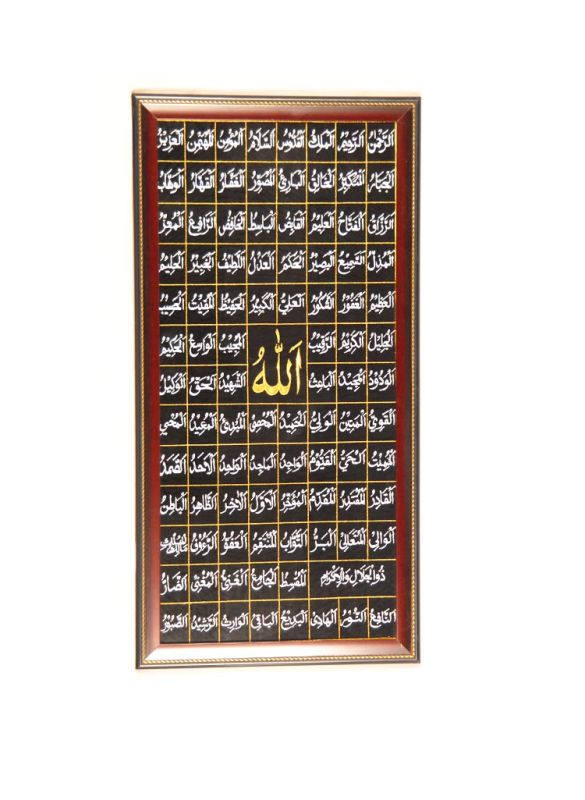 اَلرَّحْمٰنُ اَلرَّحِيْمُ اَلْمَلِكُ اَلْقُدُّوْسُ اَلسَّلَامُ اَلْمُؤْمِنُ اَلْمُهَيْمِنُ اَلْعَزِيْزُ
اَلْجَبَّارُ اَلْمُتَكَبِّرُ اَلْخَالِقُ اَلْبَارِئُ اَلْمُصَوِّرُ اَلْغَفَّارُ اَلْقَهَّارُ اَلْوَهَّابُ
اَلرَّزَّاقُ اَلْفَتَّاحُ اَلْعَلِيْمُ اَلْقَابِضُ اَلْبَاسِطُ اَلْخَافِضُ اَلرَّافِعُ اَلْمُعِزُّ
اَلْمُذِلُّ اَلسَّمِيْعُ اَلْبَصِيْرُ اَلْحَكَمُ اَلْعَدْلُ اَللَّطِيْفُ اَلْخَبِيْرُ اَلْحَلِيْمُ
اَلْعَظِيْمُ اَلْغَفُوْرُ اَلشَّكُوْرُ اَلْعَلِيُّ اَلْكَبِيْرُ اَلْحَفِيْظُ اَلْمُقِيْتُ اَلْحَسِيْبُ
اَلْجَلِيْلُ اَلْكَرِيْمُ اَلرَّقِيْبُ اَللّٰهُ اَلْمُجِيْبُ اَلْوَاسِعُ اَلْحَكِيْمُ
اَلْوَدُوْدُ اَلْمَجِيْدُ اَلْبَاعِثُ اَلشَّهِيْدُ اَلْحَقُّ اَلْوَكِيْلُ
اَلْقَوِيُّ اَلْمَتِيْنُ اَلْوَلِيُّ اَلْحَمِيْدُ اَلْمُحْصِي اَلْمُبْدِئُ اَلْمُعِيْدُ اَلْمُحْيِي
اَلْمُمِيْتُ اَلْحَيُّ اَلْقَيُّوْمُ اَلْوَاجِدُ اَلْمَاجِدُ اَلْوَاحِدُ اَلْاَحَدُ اَلصَّمَدُ
اَلْقَادِرُ اَلْمُقْتَدِرُ اَلْمُقَدِّمُ اَلْمُؤَخِّرُ اَلْاَوَّلُ اَلْاٰخِرُ اَلظَّاهِرُ اَلْبَاطِنُ
اَلْوَالِيْ اَلْمُتَعَالِيْ اَلْبَرُّ اَلتَّوَّابُ اَلْمُنْتَقِمُ اَلْعَفُوُّ اَلرَّءُوْفُ مَالِكُ الْمُلْكِ
ذُوالْجَلَالِ وَالْاِكْرَامِ اَلْمُقْسِطُ اَلْجَامِعُ اَلْغَنِيُّ اَلْمُغْنِيْ اَلضَّارُّ
اَلنَّافِعُ اَلنُّوْرُ اَلْهَادِيْ اَلْبَدِيْعُ اَلْبَاقِيْ اَلْوَارِثُ اَلرَّشِيْدُ اَلصَّبُوْرُ